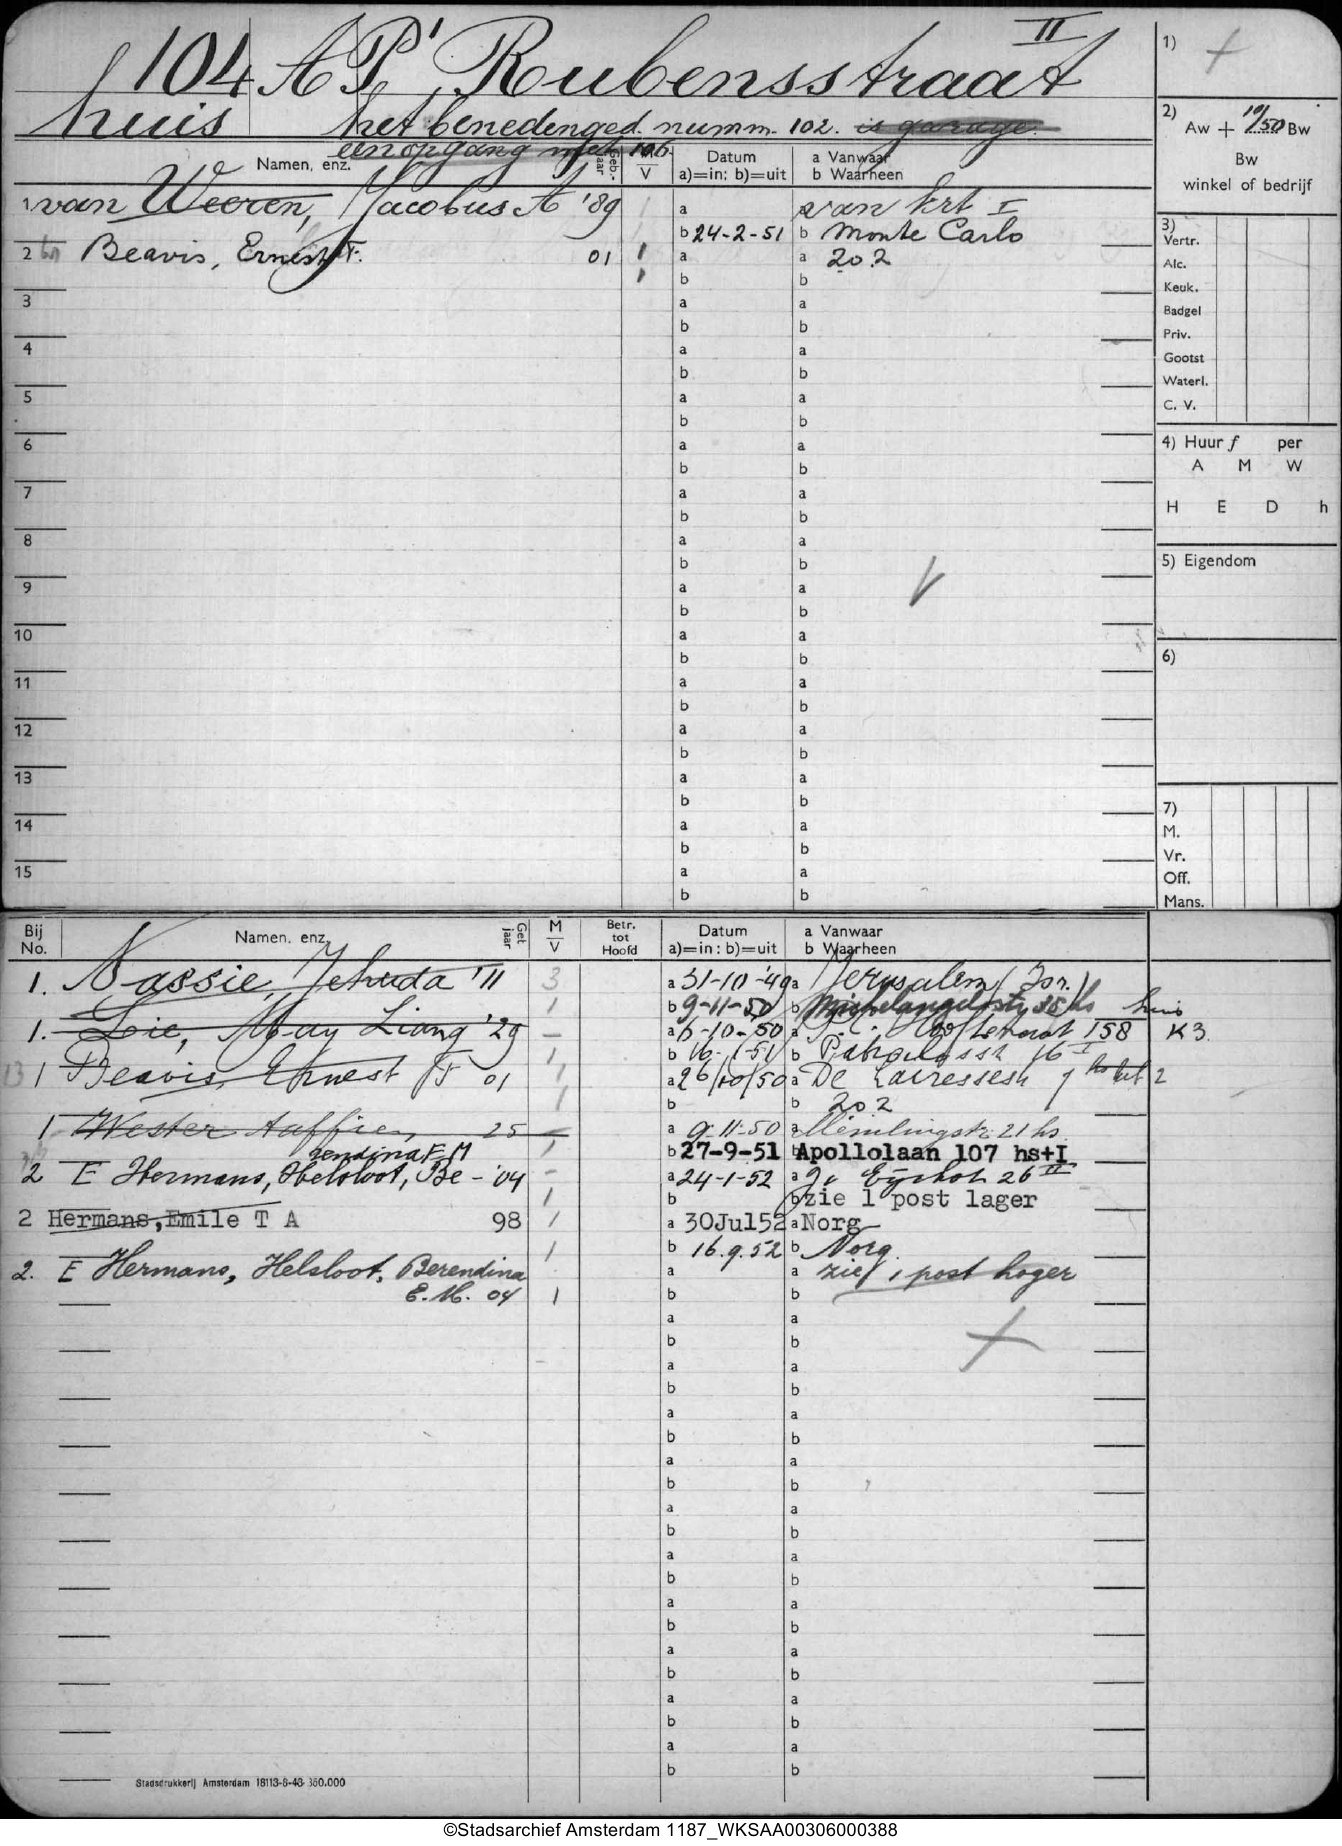 104 A P. Rubensstraat II
huis het benedenged. numm. 102. is garage.
een opgang met 106.
Namen, enz. Geb.-jaar M/V Datum a)=in: b)=uit a Vanwaar b Waarheen
1 van Weeren, Jacobus A '89 a a van krt I
b 24-2-51 b Monte Carlo
2 Beavis, Ernest F. 01 a a 202
b b
3 a a
b b
4 a a
b b
5 a a
b b
6 a a
b b
7 a a
b b
8 a a
b b
9 a a
b b
10 a a
b b
11 a a
b b
12 a a
b b
13 a a
b b
14 a a
b b
15 a a
b b
1) +
2) Aw + 10/50 Bw
Bw
winkel of bedrijf
3)
Vertr.
Alc.
Keuk.
Badgel
Priv.
Gootst
Waterl.
C. V.
4) Huur f per
A M W
H E D h
5) Eigendom
6)
7)
M.
Vr.
Off.
Mans.
Bij No. Namen, enz. Get jaar M/V Betr. tot Hoofd Datum a)=in: b)=uit a Vanwaar b Waarheen
1. Nassie, Jehuda '11 3 a 31-10-'49 a Jerusalem (Isr.)
1 b 9-11-50 b Michelangelostr 35 hs huis
1. Lie, May Liang '29 — a 6-10-50 a 158 K3.
1 b 16-1-51 b
1 Beavis, Ernest F 01 1 a 26/10/50 a De Lairessestr 2
1 b b 202
1 Wester 25 — a 9-11-50 a Memlingstr. 21 hs.
rendina E M 1 b 27-9-51 b Apollolaan 107 hs+I
2 E Hermans, Helsloot, Be- '04 - a 24-1-52 a 26 II
1 b b zie 1 post lager
2 Hermans, Emile T A 98 1 a 30Jul52 a Norg
1 b 16.9.52 b Norg.
2. E Hermans, Helsloot, Berendina a a zie 1 post hoger
E. M. 04 1 b b
a a
b b
a a
b b
a a
b b
a a
b b
a a
b b
a a
b b
a a
b b
a a
b b
a a
b b
a a
b b
Stadsdrukkerij Amsterdam 18113-8-48-350.000
©Stadsarchief Amsterdam 1187_WKSAA00306000388